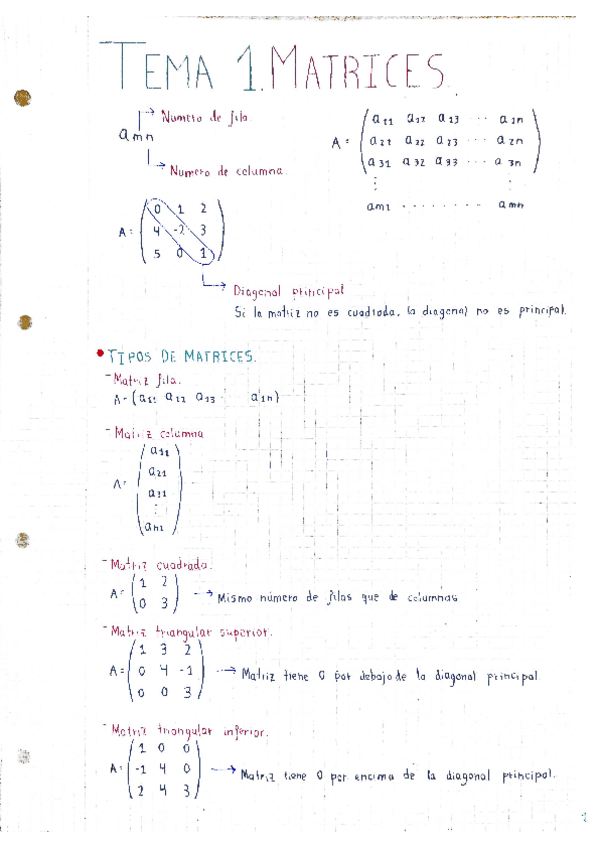 TEMA 1. MATRICES.
Numero de fila.
amn
Numero de columna.
A = ( a11 a12 a13 ... a1n
a21 a22 a23 ... a2n
a31 a32 a33 ... a3n
am1 ........ amn )
A = ( 0 1 2
4 -2 3
5 0 1 )
Diagonal principal
Si la matriz no es cuadrada, la diagonal no es principal.
• TIPOS DE MATRICES.
- Matriz fila.
A = (a11 a12 a13 ... a1n)
- Matriz columna
A = ( a11
a21
a31
⋮
am1 )
- Matriz cuadrada.
A = ( 1 2
0 3 ) → Mismo número de filas que de columnas
- Matriz triangular superior.
A = ( 1 3 2
0 4 -1
0 0 3 ) → Matriz tiene 0 por debajo de la diagonal principal
- Matriz triangular inferior.
A = ( 1 0 0
-1 4 0
2 4 3 ) → Matriz tiene 0 por encima de la diagonal principal.